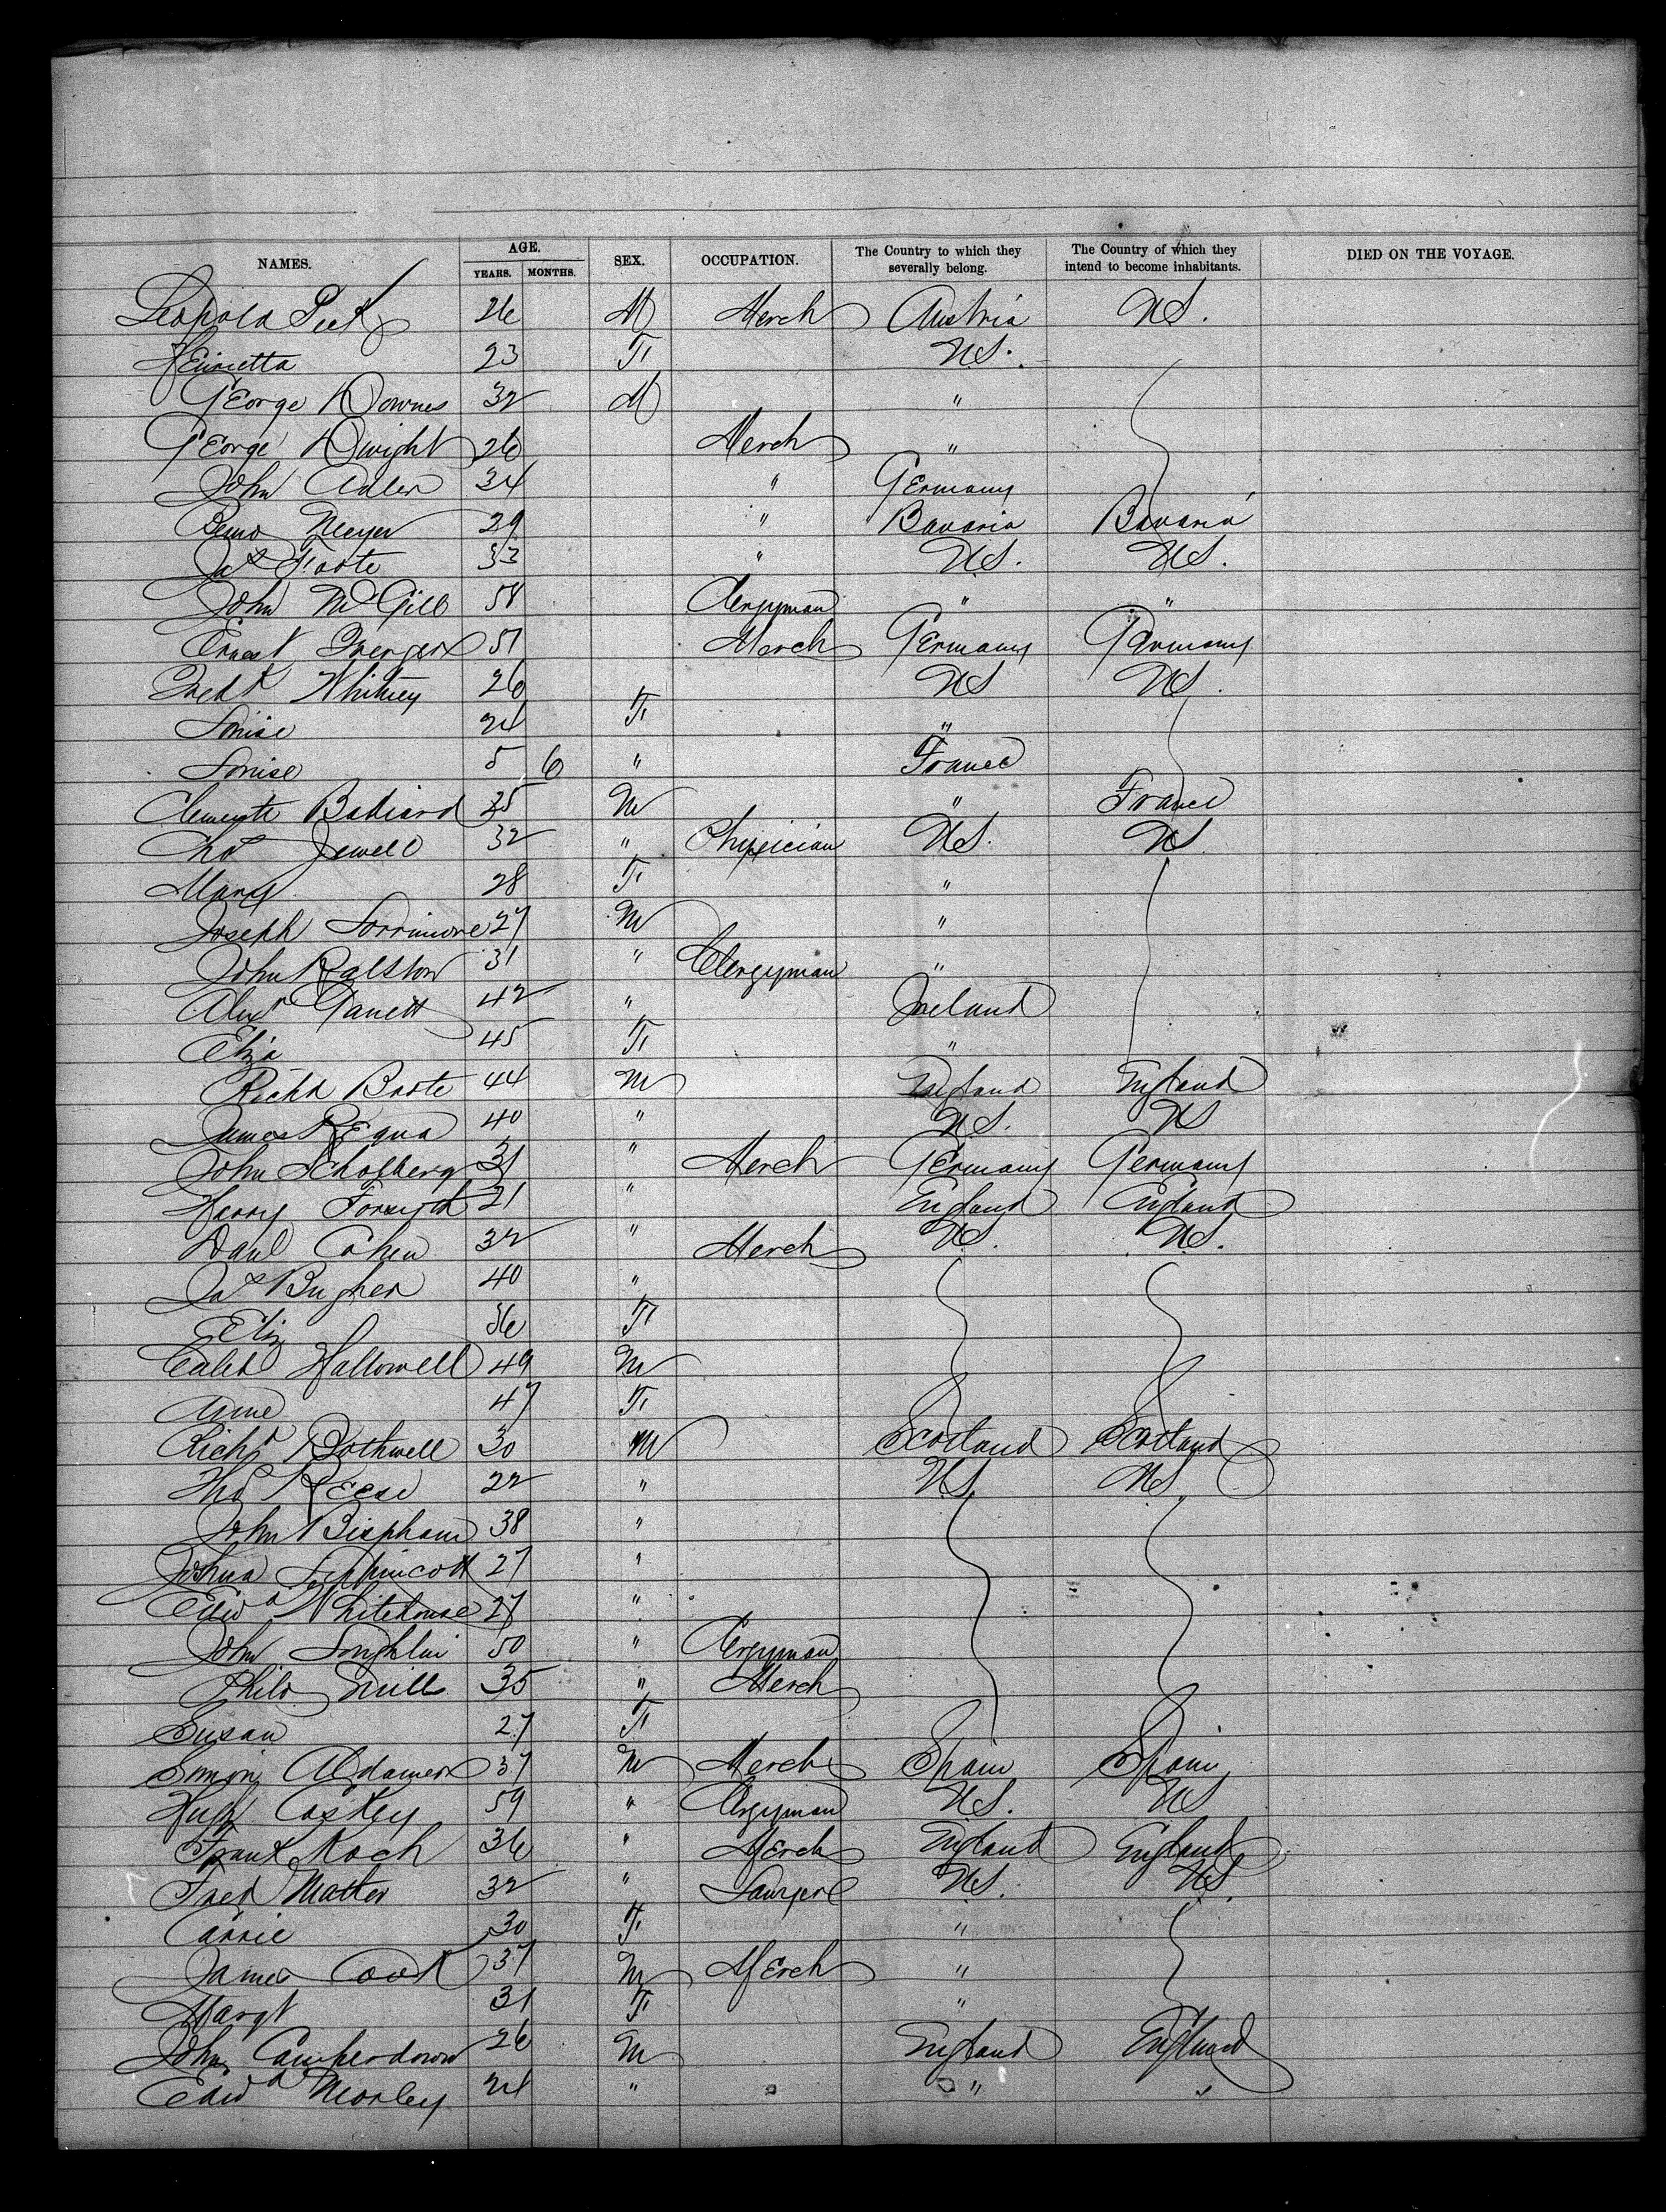 NAMES. AGE. YEARS. MONTHS. SEX. OCCUPATION. The Country to which they severally belong. The Country of which they intend to become inhabitants. DIED ON THE VOYAGE.
Leopold 26 M Merch Austria U.S.
Henrietta 23 F U.S.
George Downes 32 M "
George Dwight 26 Merch "
John Adler 34 " Germany
Meyer 29 " Bavaria Bavaria
Jas Foote 33 " U.S. U.S.
John McGill 58 Clergyman " "
Ernest 51 Merch Germany Germany
Fredk Whitney 26 US US.
Louise 24 F "
Louise 5 6 " France
25 M " France
Chas Jewell 32 " Physician U.S. US
Mary 28 F "
Joseph Lorrimore 27 M "
John Ralston 31 " Clergyman "
Alexr 42 " Ireland
Eliza 45 F "
Richd Boote 44 M England England
James Requa 40 " U.S. US
John Scholberg 31 " Merch Germany Germany
Harry Forsyth 21 " England England
Danl Cohen 32 " Merch U.S. U.S.
Jas Bugher 40 "
Eliz 36 F
Caleb Hallowell 49 M
Anne 47 F
Richd Bothwell 30 M Scotland Scotland
Thos Reese 22 " U.S. U.S.
John Bispham 38 "
Joshua Lippincott 27 "
Edwd Whitehouse 27 "
John Loughlin 50 " Clergyman
Philo 35 " Merch
Susan 27 F
Simon 37 M Merch Spain Spain
Hugh Caskey 59 " Clergyman U.S. US
Frank Koch 36 " Merch England England
Fred 32 " Lawyer U.S. U.S.
Carrie 30 F "
James Cook 37 M Merch "
Margt 31 F "
John Camperdown 26 M England England
Edwd Morley 24 " " "